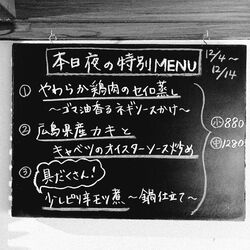 本日夜の特別MENU
12/4〜
12/14
① やわらか鶏肉のセイロ蒸し
〜ゴマ油香るネギソースかけ〜
② 広島県産カキと
キャベツのオイスターソース炒め
小 880
中 1280
③ 具だくさん!
少しピリ辛モツ煮 〜鍋仕立て〜